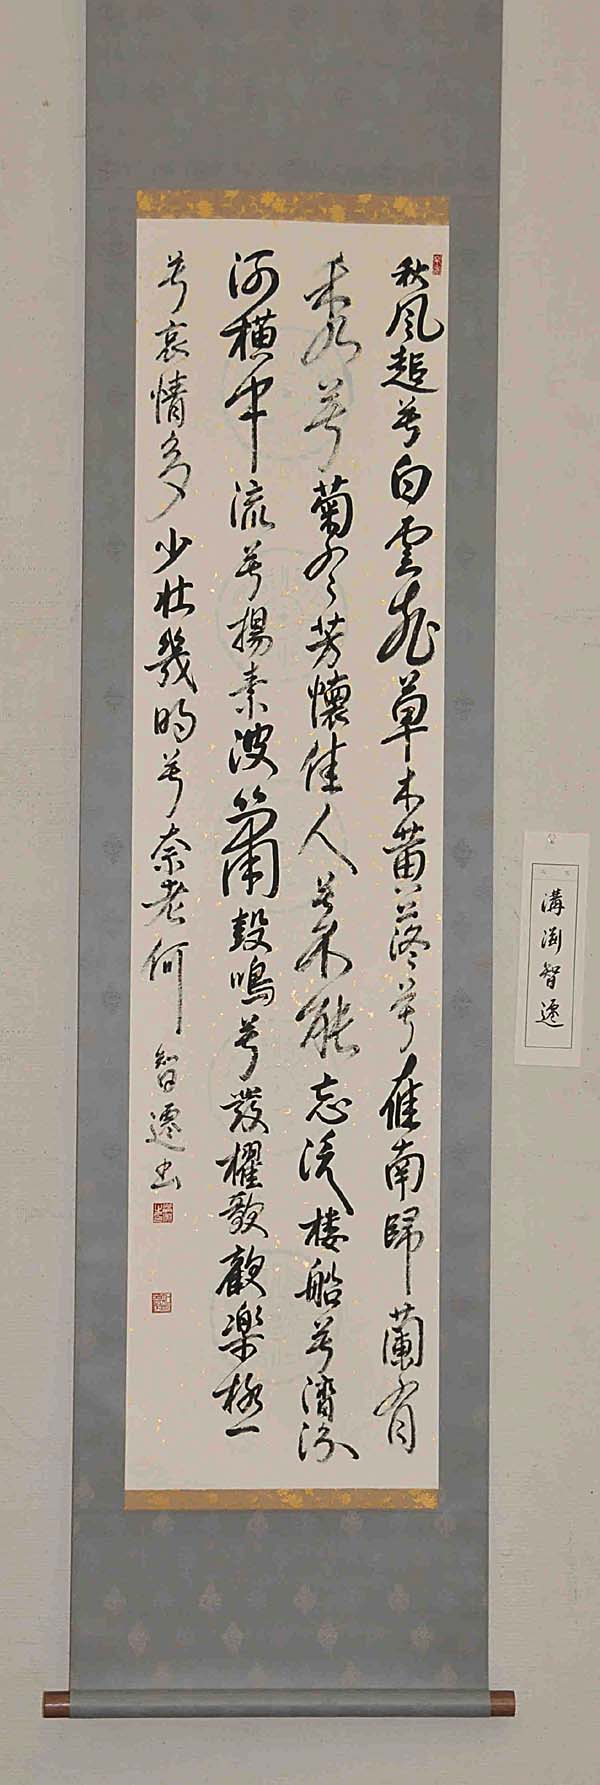 秋風起兮白雲飛草木黄落兮雁南歸蘭有
秀兮菊有芳懐佳人兮不能忘泛楼船兮濟汾
河横中流兮揚素波簫鼓鳴兮發櫂歌歓樂極
兮哀情多少壮幾時兮奈老何 智遷書
溝渕智遷